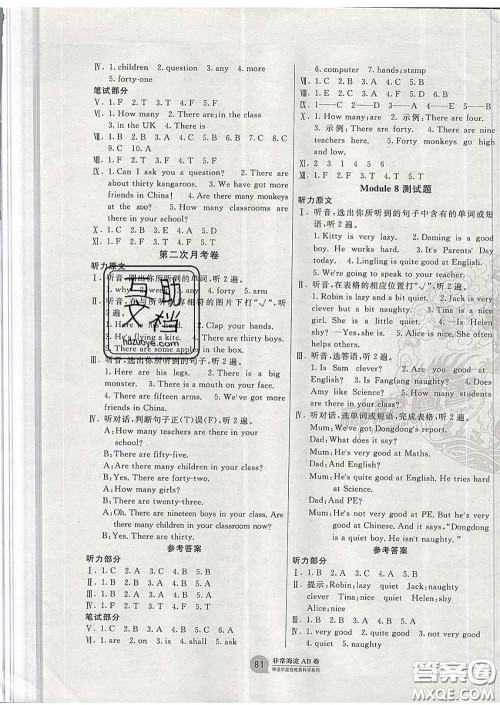 Ⅳ. 1. children  2. question  3. any  4. more
5. forty-one
笔试部分
Ⅴ. 1. F  2. T  3. T  4. F  5. F
Ⅵ. 1. How many  2. There are; in the class
3. in the UK  4. There is
Ⅷ. 1. C  2. B  3. B  4. A  5. B  6. A  7. A  8. C
9. C  10. A
Ⅸ. 1. Can I ask you a question?  2. There are
about thirty kangaroos.  3. We have got more
friends in China!  4. Are there many monkeys
at the zoo?  5. How many classrooms are
there in your school?
Ⅺ. 1. F  2. T  3. T  4. F  5. F
第二次月考卷
听力原文
Ⅰ. 听音,选出你所听到的单词,听2遍。
1. why  2. week  3. any  4. forty  5. arm
Ⅱ. 听音,在与所听内容相符的图片下打"√",听2遍。
1. Here is head.  2. Clap your hands.
3. He's flying a kite.  4. There are two boys.
5. There are some apples in the box.
Ⅲ. 听音,选出你所听到的句子,听2遍。
1. There are enough pencils.  2. There is
a star.  3. There is a mouth on your face.
4. There are fifteen arms.  5. We have got
more friends in China.
Ⅳ. 听对话,判断句子正(T)误(F),听2遍。
A: How many teachers are there in your
school?
B: There are fifty-five.
A: Are there many children in your class?
B: Yes. There are forty-two.
A: How many girls?
B: There are twenty-two.
A: Oh. There are nineteen boys in your class.
Are there many children in your classroom now?
B: Yes. There are thirty.
参考答案
听力部分
Ⅰ. 1. B  2. A  3. C  4. B  5. B
Ⅱ. 1. B  2. B  3. A  4. A  5. A
Ⅲ. 1. B  2. B  3. A  4. A  5. B
Ⅳ. 1. T  2. F  3. T  4. F  5. F
笔试部分
Ⅴ. 1. are  2. on  3. is  4. all  5. an
6. computer  7. hands; stamp
Ⅷ. 1. C  2. B  3. A  4. B  5. C
Ⅸ. 1—C  2—D  3—E  4—A  5—B
Ⅹ. 1. F  2. 示例;There are four.
3. 示例;There are forty.  4. There are nine.
5. 示例;There are forty monkeys.
Ⅺ. 2  3  1  4  5  6
Ⅻ. 1. T  2. F  3. F  4. F  5. T
Module 8 测试题
听力原文
Ⅰ. 听音,选出你所听到的句子中含有的单词或短
语,听2遍。
1. Kitty is very lazy.  2. Daming is a good
boy. He works hard.  3. It's Parents' Day
today.  4. Lingling is quiet in class.
5. We're going to speak to your teachers.
Ⅱ. 听音,在表格的相应位置打"√",听2遍。
1. Robin is lazy and a bit quiet.  2. Jack is
naughty but very clever.  3. Tina is a nice
girl. She is a little quiet.  4. I'm Helen.
I'm a little shy.  5. Alice is nice. She often
helps others.
Ⅲ. 听音,选答语,听2遍。
1. Is Sam clever?  2. Are you going to
speak English?  3. Is Fangfang naughty?
4. Does he work hard?  5. What does this
say?
Ⅳ. 听对话,选单词或短语,完成表格,听2遍。
Mum: We've got Dongdong's report today.
Dad: What does it say?
Mum: He's very good at Maths.
Dad: And English?
Mum: He's not very good at English. He tries hard
at Science.
Dad: And PE?
Mum: He's not good at PE. But he's very
good at Chinese. And it says, "Dongdong
is a quiet boy. He isn't naughty."
参考答案
听力部分
Ⅰ. 1. C  2. A  3. B  4. B  5. C
Ⅱ. 提示:Robin: lazy  quiet  Jack: naughty
clever  Tina: nice  quiet  Helen: shy
Alice: nice
Ⅲ. 1. B  2. A  3. B  4. A  5. A
81
非常海淀AB卷
答案圈
MXQE.COM